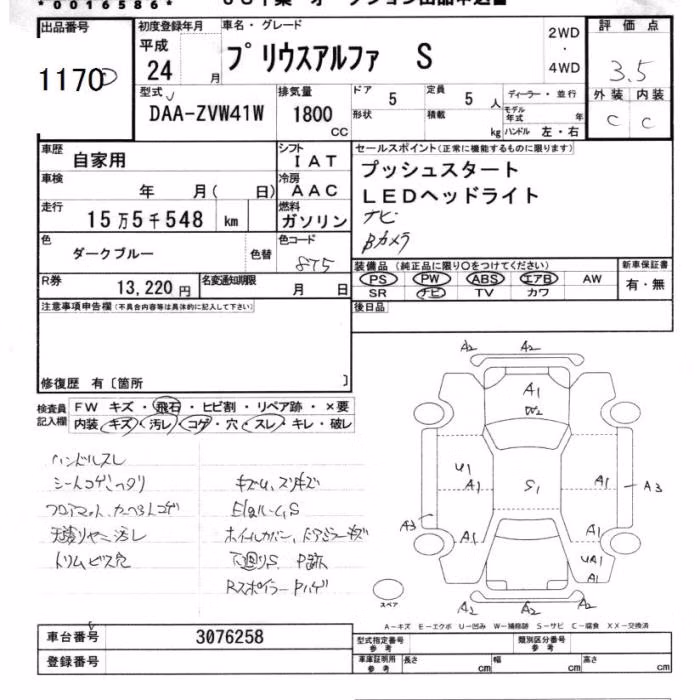 *0016586*
出品番号
1170
初度登録年月
平成
24 月
車名・グレード
プリウスアルファ S
2WD
・
4WD
評価点
3.5
外装 内装
C C
型式
DAA-ZVW41W
排気量
1800
CC
ドア
5
定員
5 人
形状
積載
kg
ディーラー・並行
モデル年式 年
ハンドル 左・右
車歴
自家用
シフト
IAT
車検
年 月( 日)
冷房
AAC
走行
15万5千548 km
燃料
ガソリン
色
ダークブルー
色替
色コード
8T5
R券
13,220 円
名変通知期限
月 日
セールスポイント(正常に機能するものに限ります)
プッシュスタート
LEDヘッドライト
ナビ
Bカメラ
装備品 (純正品に限り○をつけてください)
PS PW ABS エアB AW
SR ナビ TV カワ
新車保証書
有・無
後日品
注意事項申告欄(不具合内容等は具体的に記入して下さい)
修復歴 有〔箇所 〕
検査員記入欄
FW キズ・飛石・ヒビ割・リペア跡・×要
内装 キズ・汚レ・コゲ・穴・スレ・キレ・破レ
ハンドルスレ
シートコゲヘタリ
フロアマット、カーペットコゲ
天張りヤニ汚レ
トリムビス穴
キズU、スリキズ
ホイールカバー、ドアミラーキズ
下廻りS、P跡
RスポイラーPハゲ
A2 A2
A1
W2
U1
A1
S1
A1
A3
A3
A1
A1
UA1
A1
A2 A2 A2
スペア
A-キズ E-エクボ U-凹み W-補修跡 S-サビ C-腐食 XX-交換済
車台番号
3076258
登録番号
型式指定番号
参考
類別区分番号
参考
車庫証明用
参考
長さ cm
幅 cm
高さ cm